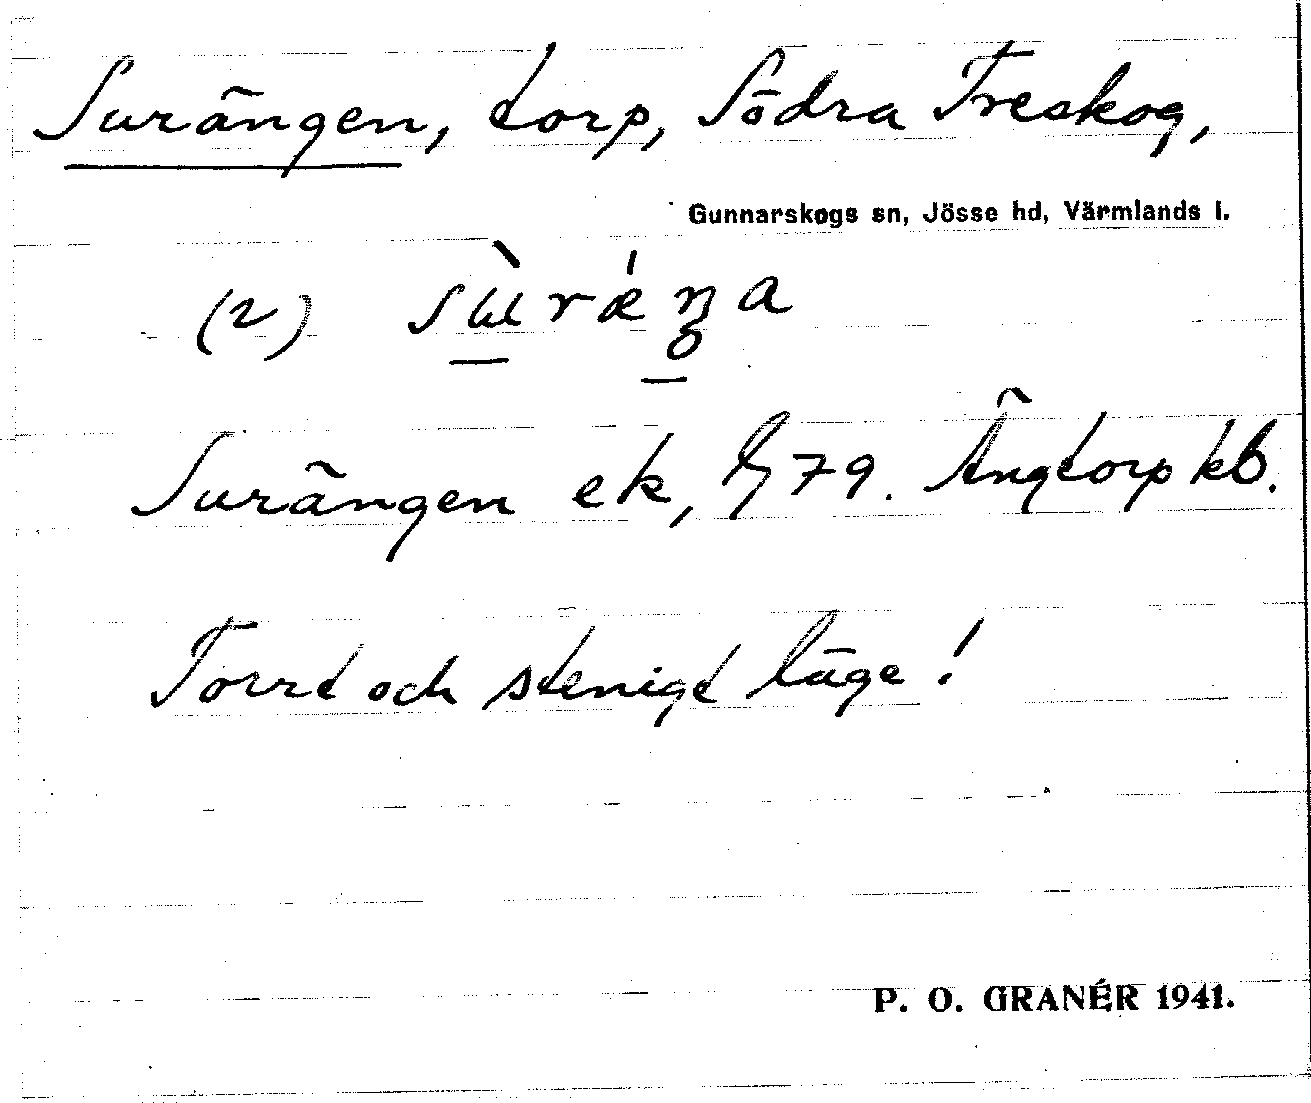 Surängen, torp, Södra Treskog,
Gunnarskogs sn, Jösse hd, Värmlands l.
(2)
Surängen ek, 79. Ängtorp kb.
Torrt och stenigt läge!
P. O. GRANÉR 1941.